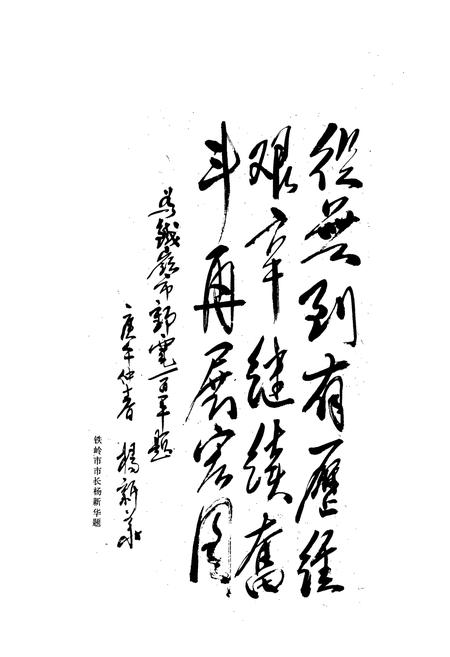 從無到有歷經
艰辛继续奮
斗再展宏图
为鐵嶺市郵電一百年题
庚午仲春 楊新華
铁岭市市长杨新华题